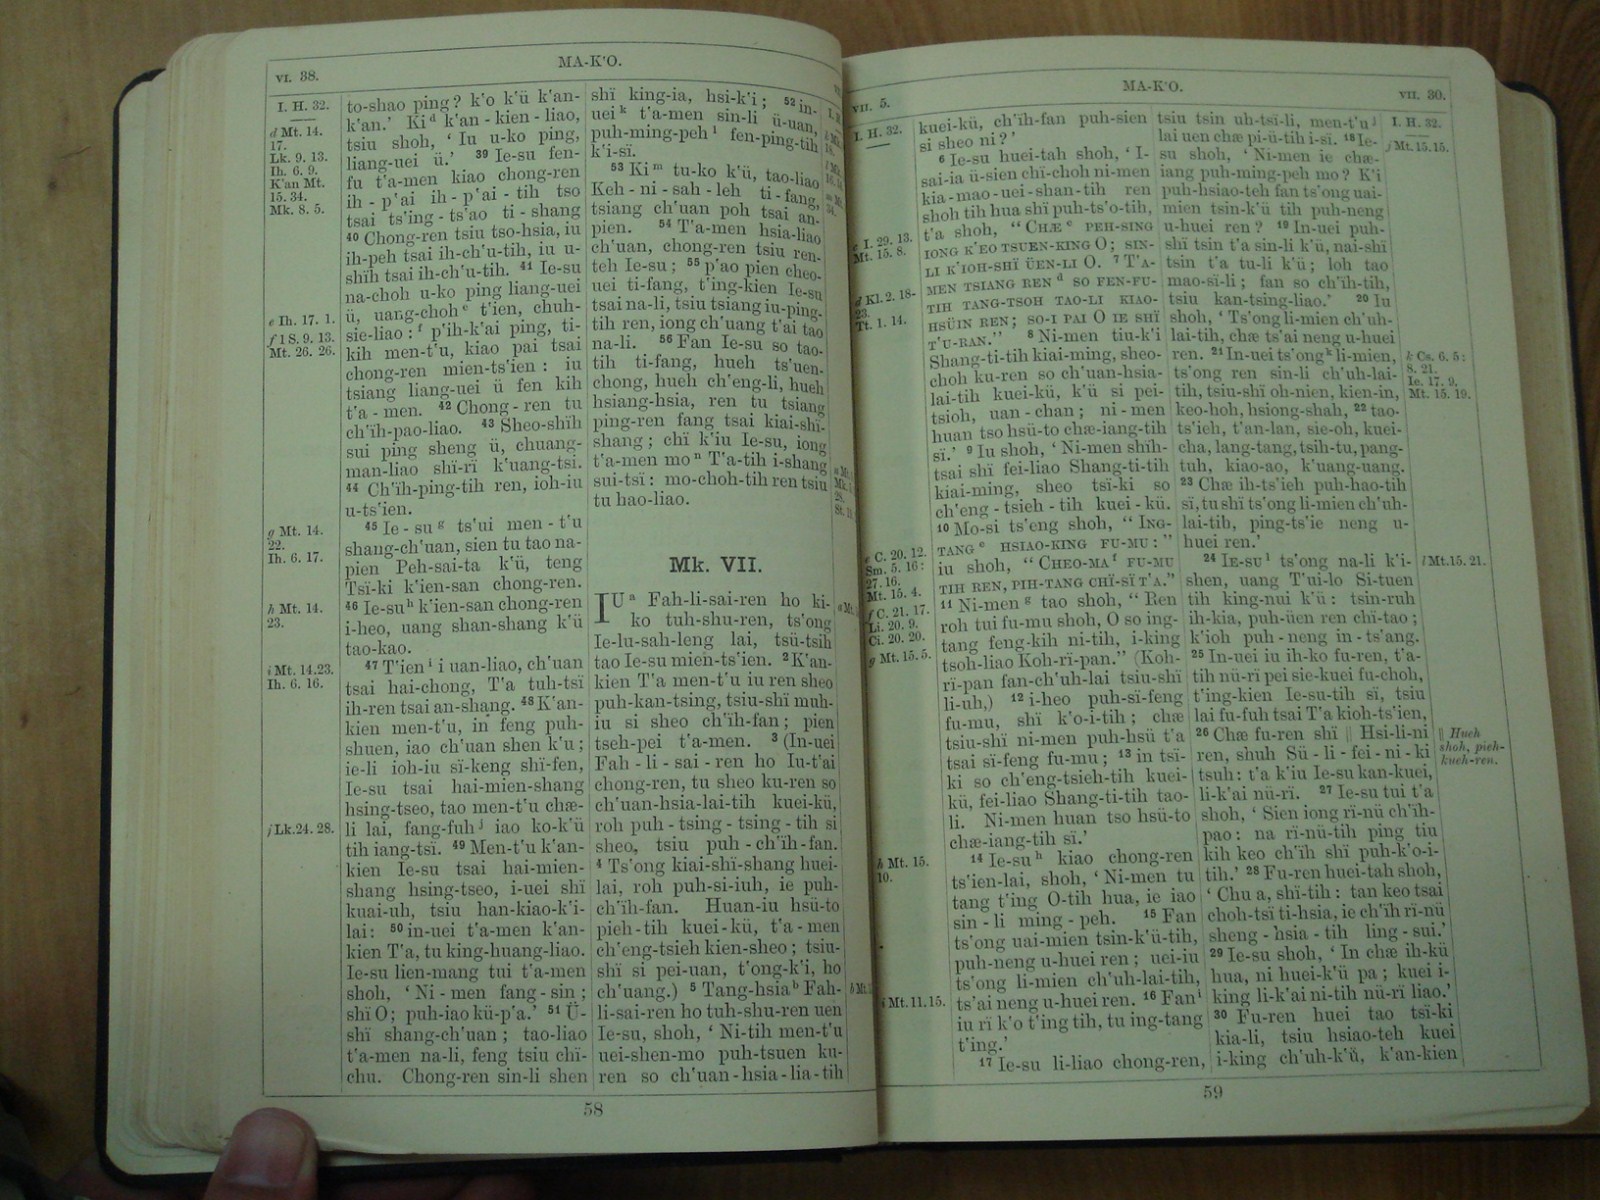 VI. 38.
MA-K'O.
I. H. 32.
d Mt. 14.
17.
Lk. 9. 13.
Ih. 6. 9.
K'an Mt.
15. 34.
Mk. 8. 5.
e Ih. 17. 1.
f 1 S. 9. 13.
Mt. 26. 26.
g Mt. 14.
22.
Ih. 6. 17.
h Mt. 14.
23.
i Mt. 14.23.
Ih. 6. 16.
j Lk.24. 28.
to-shao ping? k'o k'ü k'an-
k'an.' Ki d k'an-kien-liao,
tsiu shoh, 'Iu u-ko ping,
liang-uei ü.' 39 Ie-su fen-
fu t'a-men kiao chong-ren
ih-p'ai ih-p'ai-tih tso
tsai ts'ing-ts'ao ti-shang
40 Chong-ren tsiu tso-hsia, iu
ih-peh tsai ih-ch'u-tih, iu u-
shïh tsai ih-ch'u-tih. 41 Ie-su
na-choh u-ko ping liang-uei
ü, uang-choh e t'ien, chuh-
sie-liao: f p'ih-k'ai ping, ti-
kih men-t'u, kiao pai tsai
chong-ren mien-ts'ien: iu
tsiang liang-uei ü fen kih
t'a-men. 42 Chong-ren tu
ch'ïh-pao-liao. 43 Sheo-shïh
sui ping sheng ü, chuang-
man-liao shï-rï k'uang-tsi.
44 Ch'ïh-ping-tih ren, ioh-iu
u-ts'ien.
45 Ie-su g ts'ui men-t'u
shang-ch'uan, sien tu tao na-
pien Peh-sai-ta k'ü, teng
Tsï-ki k'ien-san chong-ren.
46 Ie-su h k'ien-san chong-ren
i-heo, uang shan-shang k'ü
tao-kao.
47 T'ien i i uan-liao, ch'uan
tsai hai-chong, T'a tuh-tsï
ih-ren tsai an-shang. 48 K'an-
kien men-t'u, in feng puh-
shuen, iao ch'uan shen k'u;
ie-li ioh-iu sï-keng shï-fen,
Ie-su tsai hai-mien-shang
hsing-tseo, tao men-t'u chæ-
li lai, fang-fuh j iao ko-k'ü
tih iang-tsï. 49 Men-t'u k'an-
kien Ie-su tsai hai-mien-
shang hsing-tseo, i-uei shï
kuai-uh, tsiu han-kiao-k'i-
lai: 50 in-uei t'a-men k'an-
kien T'a, tu king-huang-liao.
Ie-su lien-mang tui t'a-men
shoh, 'Ni-men fang-sin;
shï O; puh-iao kü-p'a.' 51 Ü-
shï shang-ch'uan; tao-liao
t'a-men na-li, feng tsiu chï-
chu. Chong-ren sin-li shen
shï king-ia, hsi-k'i; 52 in-
uei k t'a-men sin-li ü-uan,
puh-ming-peh l fen-ping-tih
k'i-sï.
53 Ki m tu-ko k'ü, tao-liao
Keh-ni-sah-leh ti-fang,
tsiang ch'uan poh tsai an-
pien. 54 T'a-men hsia-liao
ch'uan, chong-ren tsiu ren-
teh Ie-su; 55 p'ao pien cheo-
uei ti-fang, t'ing-kien Ie-su
tsai na-li, tsiu tsiang iu-ping-
tih ren, iong ch'uang t'ai tao
na-li. 56 Fan Ie-su so tao-
tih ti-fang, hueh ts'uen-
chong, hueh ch'eng-li, hueh
hsiang-hsia, ren tu tsiang
ping-ren fang tsai kiai-shï-
shang; chï k'iu Ie-su, iong
t'a-men mo n T'a-tih i-shang
sui-tsï: mo-choh-tih ren tsiu
tu hao-liao.
Mk. VII.
IU a Fah-li-sai-ren ho ki-
ko tuh-shu-ren, ts'ong
Ie-lu-sah-leng lai, tsü-tsih
tao Ie-su mien-ts'ien. 2 K'an-
kien T'a men-t'u iu ren sheo
puh-kan-tsing, tsiu-shï muh-
iu si sheo ch'ïh-fan; pien
tseh-pei t'a-men. 3 (In-uei
Fah-li-sai-ren ho Iu-t'ai
chong-ren, tu sheo ku-ren so
ch'uan-hsia-lai-tih kuei-kü,
roh puh-tsing-tsing-tih si
sheo, tsiu puh-ch'ïh-fan.
4 Ts'ong kiai-shï-shang huei-
lai, roh puh-si-iuh, ie puh-
ch'ïh-fan. Huan-iu hsü-to
pieh-tih kuei-kü, t'a-men
ch'eng-tsieh kien-sheo; tsiu-
shï si pei-uan, t'ong-k'i, ho
ch'uang.) 5 Tang-hsia b Fah-
li-sai-ren ho tuh-shu-ren uen
Ie-su, shoh, 'Ni-tih men-t'u
uei-shen-mo puh-tsuen ku-
ren so ch'uan-hsia-lia-tih
58
VII. 5.
MA-K'O.
VII. 30.
I. H. 32.
c I. 29. 13.
Mt. 15. 8.
d Kl. 2. 18-
23.
Tt. 1. 14.
e C. 20. 12.
Sm. 5. 16:
27. 16.
Mt. 15. 4.
f C. 21. 17.
Li. 20. 9.
Ci. 20. 20.
g Mt. 15. 5.
h Mt. 15.
10.
i Mt. 11. 15.
kuei-kü, ch'ïh-fan puh-sien
si sheo ni?'
6 Ie-su huei-tah shoh, 'I-
sai-ia ü-sien chï-choh ni-men
kia-mao-uei-shan-tih ren
shoh tih hua shï puh-ts'o-tih,
t'a shoh, "CHÆ c PEH-SING
IONG K'EO TSUEN-KING O; SIN-
LI K'IOH-SHÏ ÜEN-LI O. 7 T'A-
MEN TSIANG REN d SO FEN-FU-
TIH TANG-TSOH TAO-LI KIAO-
HSÜIN REN; SO-I PAI O IE SHÏ
T'U-RAN." 8 Ni-men tiu-k'i
Shang-ti-tih kiai-ming, sheo-
choh ku-ren so ch'uan-hsia-
lai-tih kuei-kü, k'ü si pei-
tsioh, uan-chan; ni-men
huan tso hsü-to chæ-iang-tih
sï.' 9 Iu shoh, 'Ni-men shïh-
tsai shï fei-liao Shang-ti-tih
kiai-ming, sheo tsï-ki so
ch'eng-tsieh-tih kuei-kü.
10 Mo-si ts'eng shoh, "ING-
TANG e HSIAO-KING FU-MU:"
iu shoh, "CHEO-MA f FU-MU
TIH REN, PIH-TANG CHÏ-SÏ T'A."
11 Ni-men g tao shoh, "Ren
roh tui fu-mu shoh, O so ing-
tang feng-kih ni-tih, i-king
tsoh-liao Koh-rï-pan." (Koh-
rï-pan fan-ch'uh-lai tsiu-shï
li-uh,) 12 i-heo puh-sï-feng
fu-mu, shï k'o-i-tih; chæ
tsiu-shï ni-men puh-hsü t'a
tsai sï-feng fu-mu; 13 in tsï-
ki so ch'eng-tsieh-tih kuei-
kü, fei-liao Shang-ti-tih tao-
li. Ni-men huan tso hsü-to
chæ-iang-tih sï.'
14 Ie-su h kiao chong-ren
ts'ien-lai, shoh, 'Ni-men tu
tang t'ing O-tih hua, ie iao
sin-li ming-peh. 15 Fan
ts'ong uai-mien tsin-k'ü-tih,
puh-neng u-huei ren; uei-iu
ts'ong li-mien ch'uh-lai-tih,
ts'ai neng u-huei ren. 16 Fan i
iu rï k'o t'ing tih, tu ing-tang
t'ing.'
17 Ie-su li-liao chong-ren,
tsiu tsin uh-tsï-li, men-t'u j
lai uen chæ pi-ü-tih i-sï. 18 Ie-
su shoh, 'Ni-men ie chæ-
iang puh-ming-peh mo? K'i
puh-hsiao-teh fan ts'ong uai-
mien tsin-k'ü tih puh-neng
u-huei ren? 19 In-uei puh-
shï tsin t'a sin-li k'ü, nai-shï
tsin t'a tu-li k'ü; loh tao
mao-si-li; fan so ch'ïh-tih,
tsiu kan-tsing-liao.' 20 Iu
shoh, 'Ts'ong li-mien ch'uh-
lai-tih, chæ ts'ai neng u-huei
ren. 21 In-uei ts'ong k li-mien,
ts'ong ren sin-li ch'uh-lai-
tih, tsiu-shï oh-nien, kien-in,
keo-hoh, hsiong-shah, 22 tao-
ts'ieh, t'an-lan, sie-oh, kuei-
cha, lang-tang, tsih-tu, pang-
tuh, kiao-ao, k'uang-uang.
23 Chæ ih-ts'ieh puh-hao-tih
sï, tu shï ts'ong li-mien ch'uh-
lai-tih, ping-ts'ie neng u-
huei ren.'
24 Ie-su l ts'ong na-li k'i-
shen, uang T'ui-lo Si-tuen
tih king-nui k'ü: tsin-ruh
ih-kia, puh-üen ren chï-tao;
k'ioh puh-neng in-ts'ang.
25 In-uei iu ih-ko fu-ren, t'a-
tih nü-rï pei sie-kuei fu-choh,
t'ing-kien Ie-su-tih sï, tsiu
lai fu-fuh tsai T'a kioh-ts'ien,
26 Chæ fu-ren shï || Hsi-li-ni
ren, shuh Sü-li-fei-ni-ki
tsuh: t'a k'iu Ie-su kan-kuei,
li-k'ai nü-rï. 27 Ie-su tui t'a
shoh, 'Sien iong rï-nü ch'ïh-
pao: na rï-nü-tih ping tiu
kih keo ch'ïh shï puh-k'o-i-
tih.' 28 Fu-ren huei-tah shoh,
'Chu a, shï-tih: tan keo tsai
choh-tsï ti-hsia, ie ch'ïh rï-nü
sheng-hsia-tih ling-sui.'
29 Ie-su shoh, 'In chæ ih-kü
hua, ni huei-k'ü pa; kuei i-
king li-k'ai ni-tih nü-rï liao.'
30 Fu-ren huei tao tsï-ki
kia-li, tsiu hsiao-teh kuei
i-king ch'uh-k'ü, k'an-kien
I. H. 32.
j Mt. 15. 15.
k Cs. 6. 5:
8. 21.
Ie. 17. 9.
Mt. 15. 19.
l Mt. 15. 21.
|| Hueh
shoh, pieh-
kueh-ren.
59